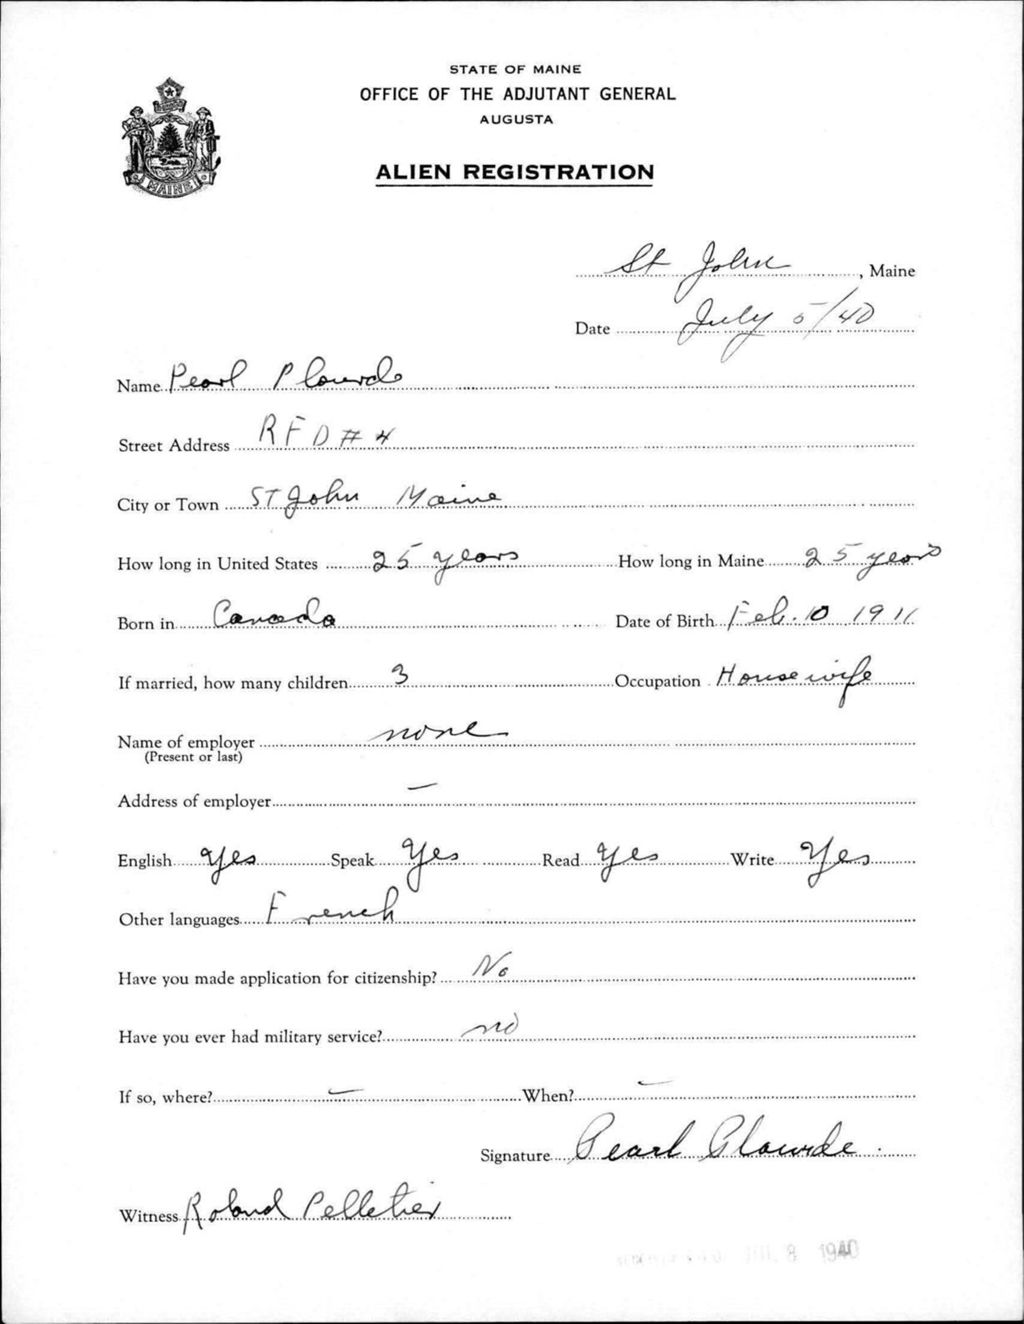 STATE OF MAINE
OFFICE OF THE ADJUTANT GENERAL
AUGUSTA
ALIEN REGISTRATION
MAINE
St John, Maine
Date July 5/40
Name Pearl Plourde
Street Address RFD #4
City or Town St John Maine
How long in United States 25 years How long in Maine 25 years
Born in Canada Date of Birth Feb. 10 1911
If married, how many children 3 Occupation Housewife
Name of employer none
(Present or last)
Address of employer —
English Yes Speak Yes Read Yes Write Yes
Other languages French
Have you made application for citizenship? No
Have you ever had military service? no
If so, where? — When? —
Signature Pearl Plourde.
Witness Roland Pelletier
JUL 8 1940